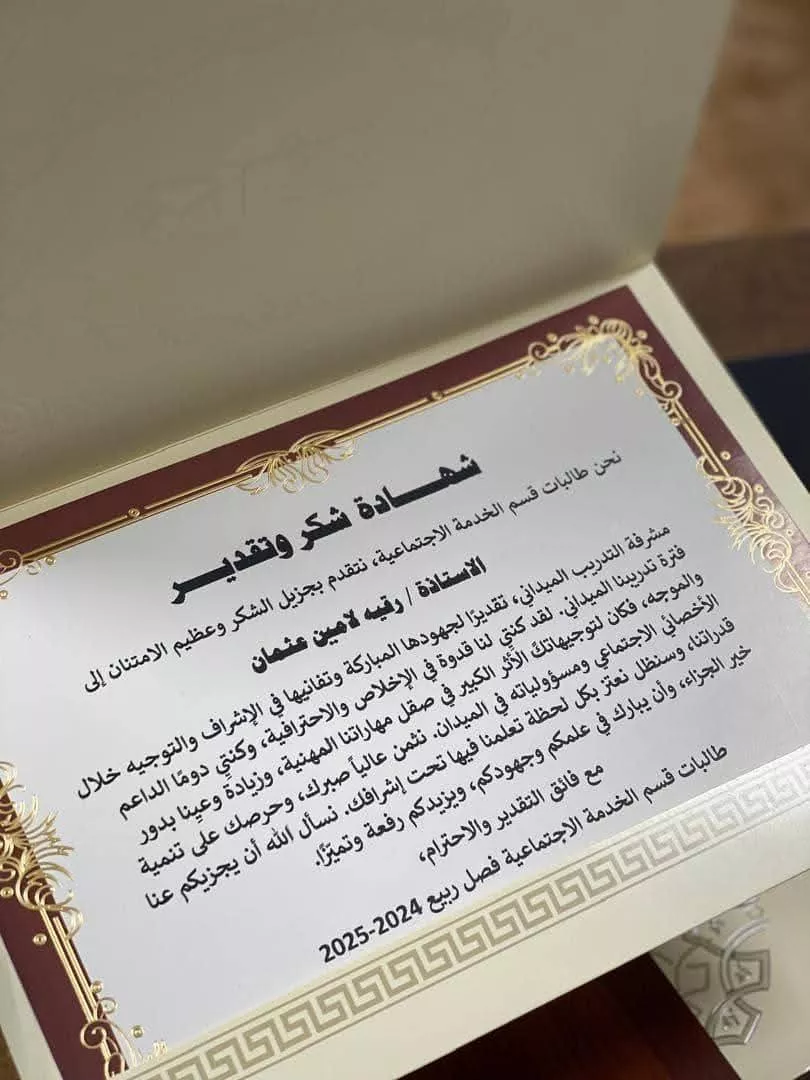 شهـــادة شكر وتقديـــر
نحن طالبات قسم الخدمة الاجتماعية، نتقدم بجزيل الشكر وعظيم الامتنان إلى
الاستاذة / رقيه لامين عثمان
مشرفة التدريب الميداني، تقديرًا لجهودها المباركة وتفانيها في الإشراف والتوجيه خلال
فترة تدريبنا الميداني. لقد كنتي لنا قدوة في الإخلاص والاحترافية، وكنتي دومًا الداعم
والموجه، فكان لتوجيهاتك الأثر الكبير في صقل مهاراتنا المهنية، وزيادة وعينا بدور
الأخصائي الاجتماعي ومسؤولياته في الميدان. نثمن عالياً صبرك، وحرصك على تنمية
قدراتنا، وسنظل نعتز بكل لحظة تعلمنا فيها تحت إشرافك. نسأل الله أن يجزيكم عنا
خير الجزاء، وأن يبارك في علمكم وجهودكم، ويزيدكم رفعة وتميّزًا.
مع فائق التقدير والاحترام،
طالبات قسم الخدمة الاجتماعية فصل ربيع 2024-2025